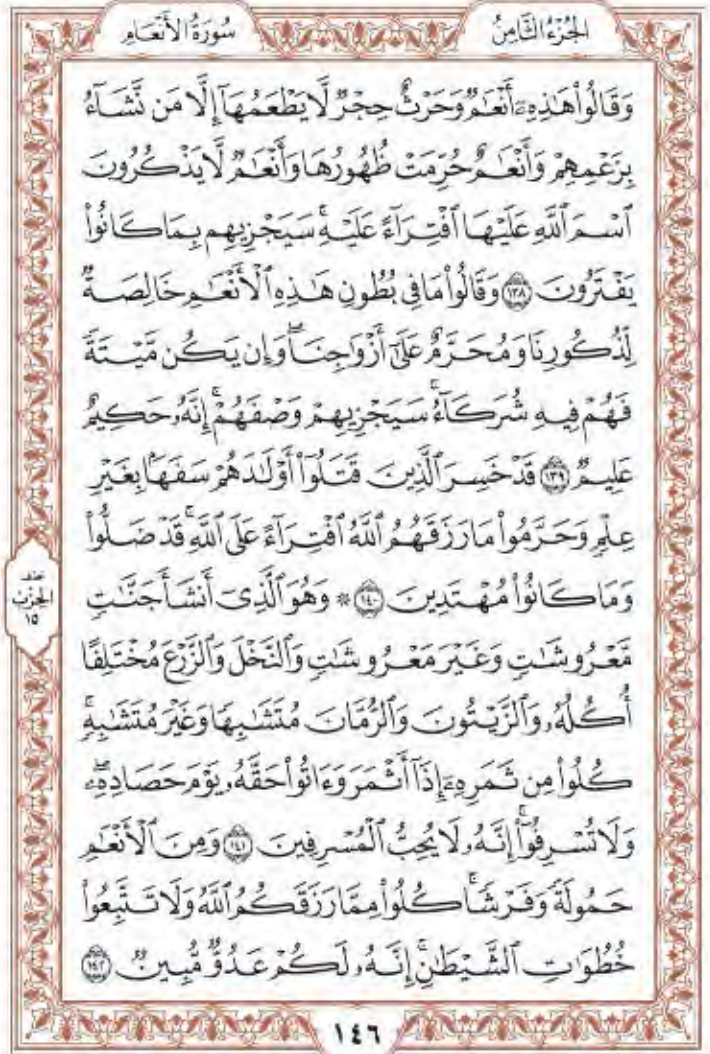 الجُزْءُ الثَّامِنُ
سُورَةُ الأَنْعَامِ
وَقَالُوا۟ هَـٰذِهِۦٓ أَنْعَـٰمٌ وَحَرْثٌ حِجْرٌ لَّا يَطْعَمُهَآ إِلَّا مَن نَّشَآءُ
بِزَعْمِهِمْ وَأَنْعَـٰمٌ حُرِّمَتْ ظُهُورُهَا وَأَنْعَـٰمٌ لَّا يَذْكُرُونَ
ٱسْمَ ٱللَّهِ عَلَيْهَا ٱفْتِرَآءً عَلَيْهِ ۚ سَيَجْزِيهِم بِمَا كَانُوا۟
يَفْتَرُونَ ۝١٣٨ وَقَالُوا۟ مَا فِى بُطُونِ هَـٰذِهِ ٱلْأَنْعَـٰمِ خَالِصَةٌ
لِّذُكُورِنَا وَمُحَرَّمٌ عَلَىٰٓ أَزْوَٰجِنَا ۖ وَإِن يَكُن مَّيْتَةً
فَهُمْ فِيهِ شُرَكَآءُ ۚ سَيَجْزِيهِمْ وَصْفَهُمْ ۚ إِنَّهُۥ حَكِيمٌ
عَلِيمٌ ۝١٣٩ قَدْ خَسِرَ ٱلَّذِينَ قَتَلُوٓا۟ أَوْلَـٰدَهُمْ سَفَهًۢا بِغَيْرِ
عِلْمٍ وَحَرَّمُوا۟ مَا رَزَقَهُمُ ٱللَّهُ ٱفْتِرَآءً عَلَى ٱللَّهِ ۚ قَدْ ضَلُّوا۟
وَمَا كَانُوا۟ مُهْتَدِينَ ۝١٤٠ ۞ وَهُوَ ٱلَّذِىٓ أَنشَأَ جَنَّـٰتٍ
مَّعْرُوشَـٰتٍ وَغَيْرَ مَعْرُوشَـٰتٍ وَٱلنَّخْلَ وَٱلزَّرْعَ مُخْتَلِفًا
أُكُلُهُۥ وَٱلزَّيْتُونَ وَٱلرُّمَّانَ مُتَشَـٰبِهًا وَغَيْرَ مُتَشَـٰبِهٍ ۚ
كُلُوا۟ مِن ثَمَرِهِۦٓ إِذَآ أَثْمَرَ وَءَاتُوا۟ حَقَّهُۥ يَوْمَ حَصَادِهِۦ ۖ
وَلَا تُسْرِفُوٓا۟ ۚ إِنَّهُۥ لَا يُحِبُّ ٱلْمُسْرِفِينَ ۝١٤١ وَمِنَ ٱلْأَنْعَـٰمِ
حَمُولَةً وَفَرْشًا ۚ كُلُوا۟ مِمَّا رَزَقَكُمُ ٱللَّهُ وَلَا تَتَّبِعُوا۟
خُطُوَٰتِ ٱلشَّيْطَـٰنِ ۚ إِنَّهُۥ لَكُمْ عَدُوٌّ مُّبِينٌ ۝١٤٢
الحِزْبُ
١٥
١٤٦